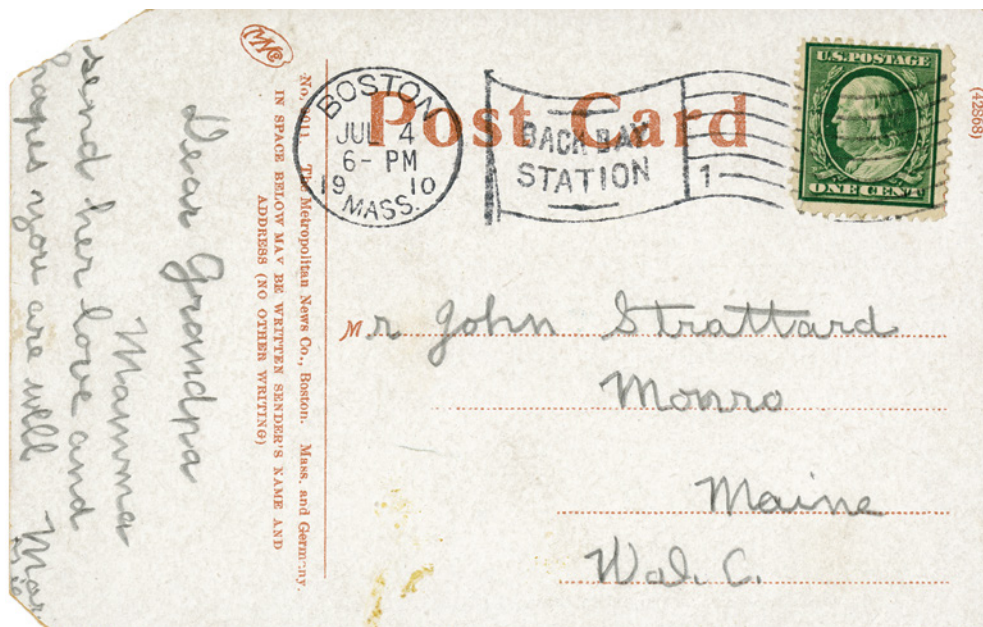 Post Card
BOSTON
JUL 4
6-PM
19 10
MASS.
BACK BAY
STATION
1
U.S. POSTAGE
ONE CENT
(42868)
The Metropolitan News Co., Boston. Mass. and Germany.
IN SPACE BELOW MAY BE WRITTEN SENDER'S NAME AND
ADDRESS (NO OTHER WRITING)
Mr John Strattard
Monro
Maine
Wal. C.
Dear Grandpa
Mamma
send her love and
hopes you are well